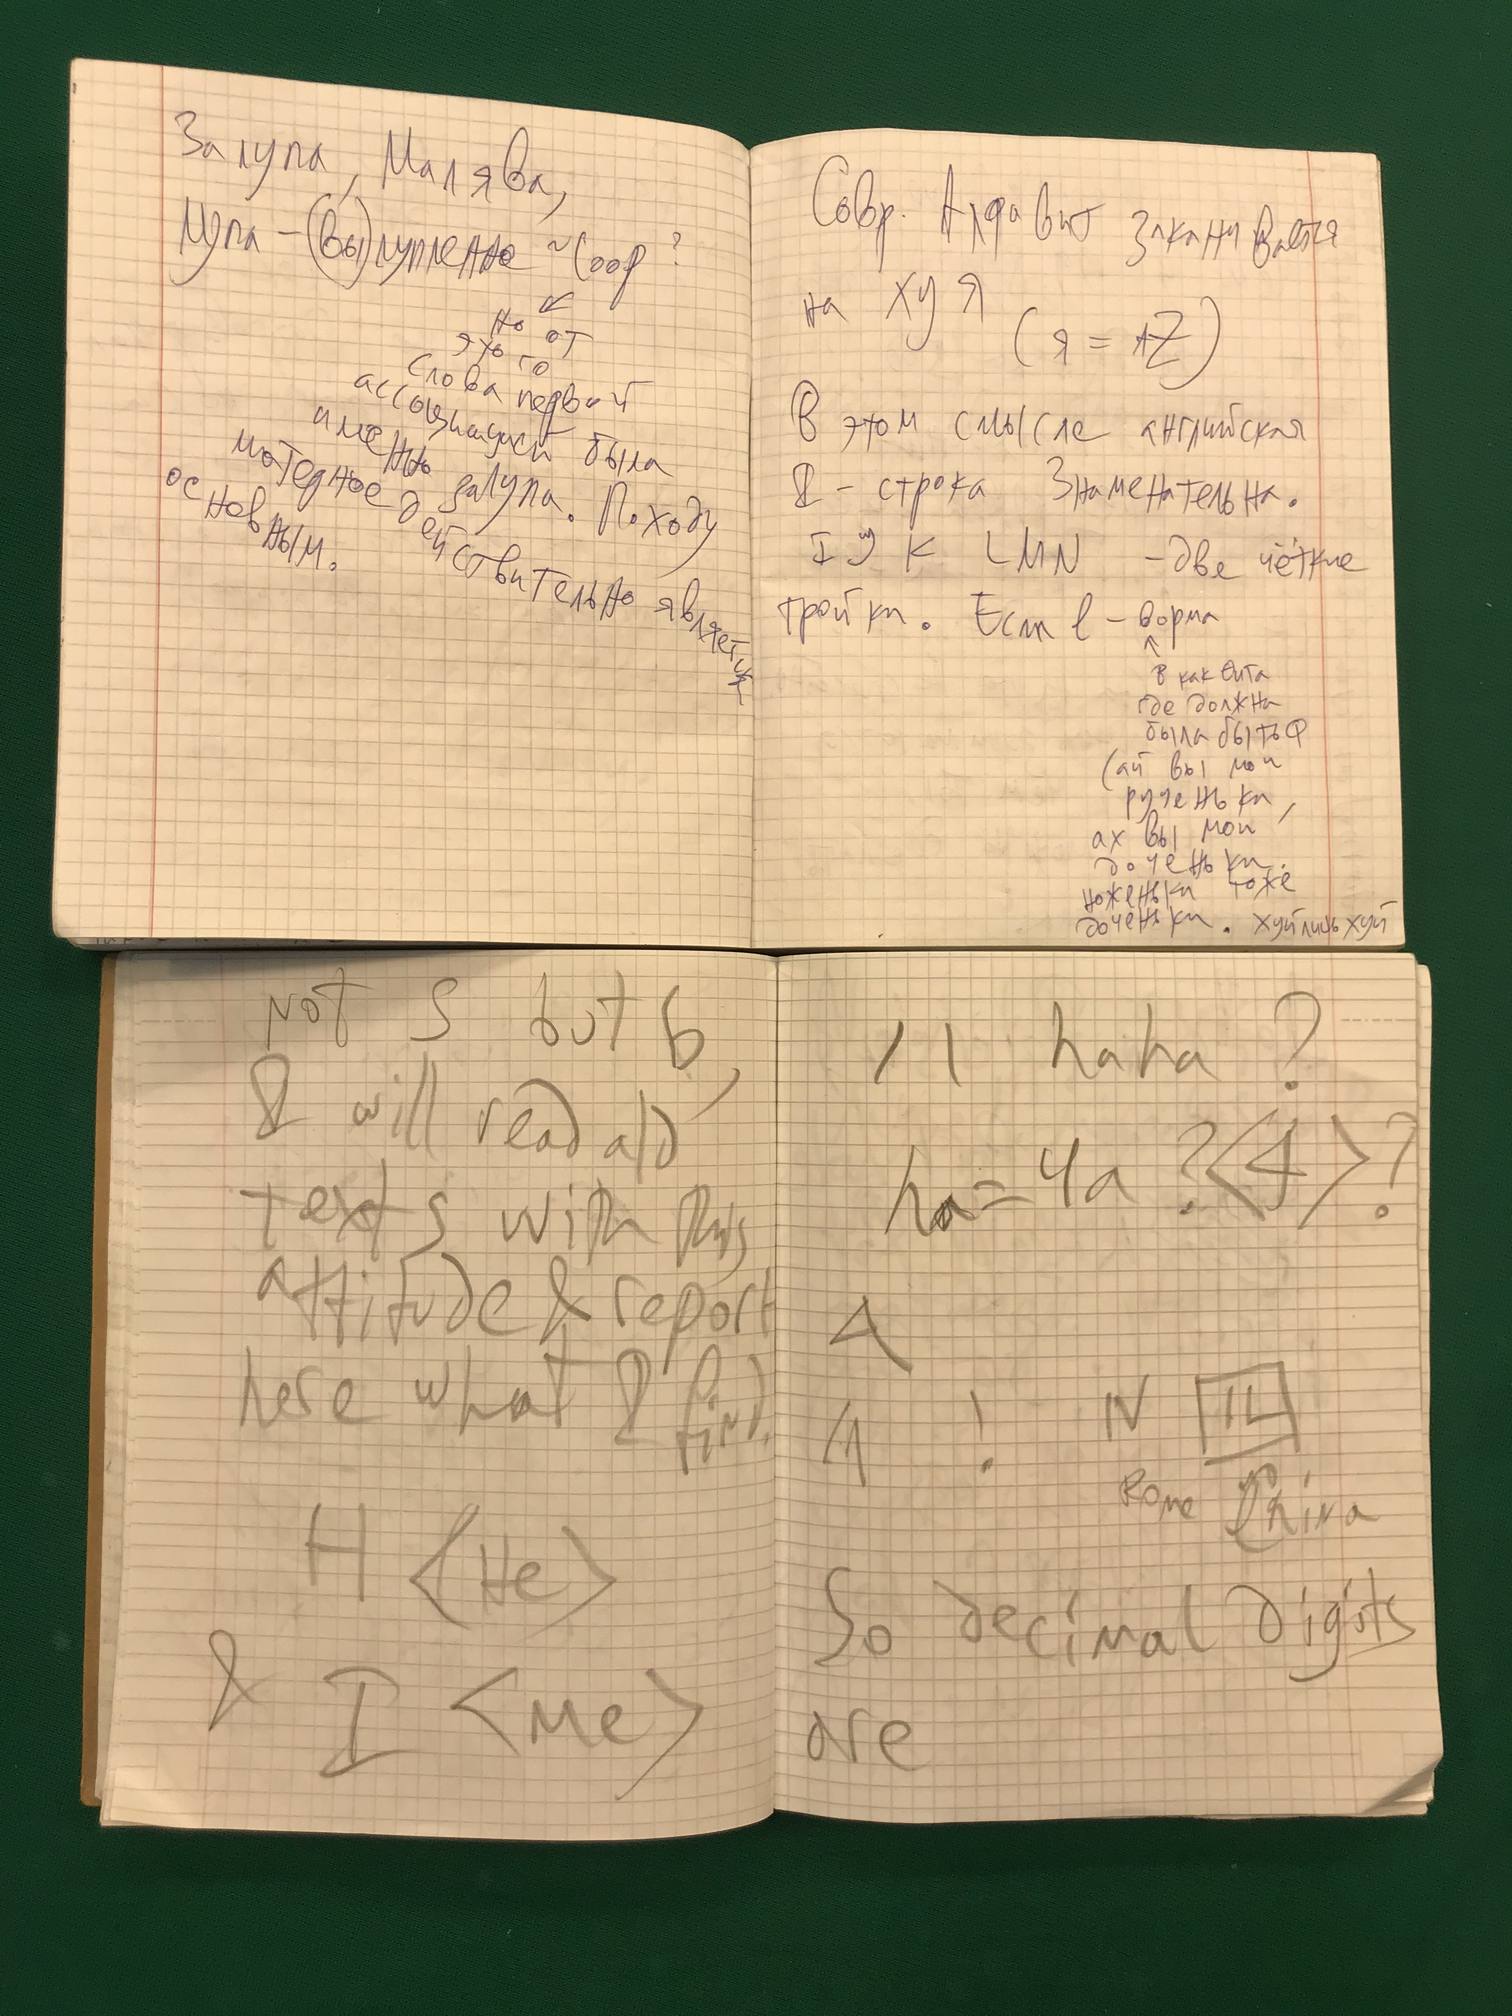 Залупа, Малява,
лупа – (вы)лупленное ~
но от
слова первой
ассоциацией была
именно залупа. Походу
матерное действительно является
основным.
Совр. Алфавит заканчивается
на ХУЯ
(Я = AZ)
В этом смысле английская
I - строка знаменательна.
I J K LMN – две чёткие
тройки. Если l –
в как фита
где должна
была быть Ф
(ай вы мои
рученьки,
ах вы мои
доченьки.
ноженьки тоже
доченьки. хуйлишьхуй
Not S but b,
& will read old
texts with this
attitude & report
here what I find.
H <He>
& I <Me>
/ | haha ?
ha=4a ?<4>?
4
/1 ! IV
Rome China
So decimal digits
are